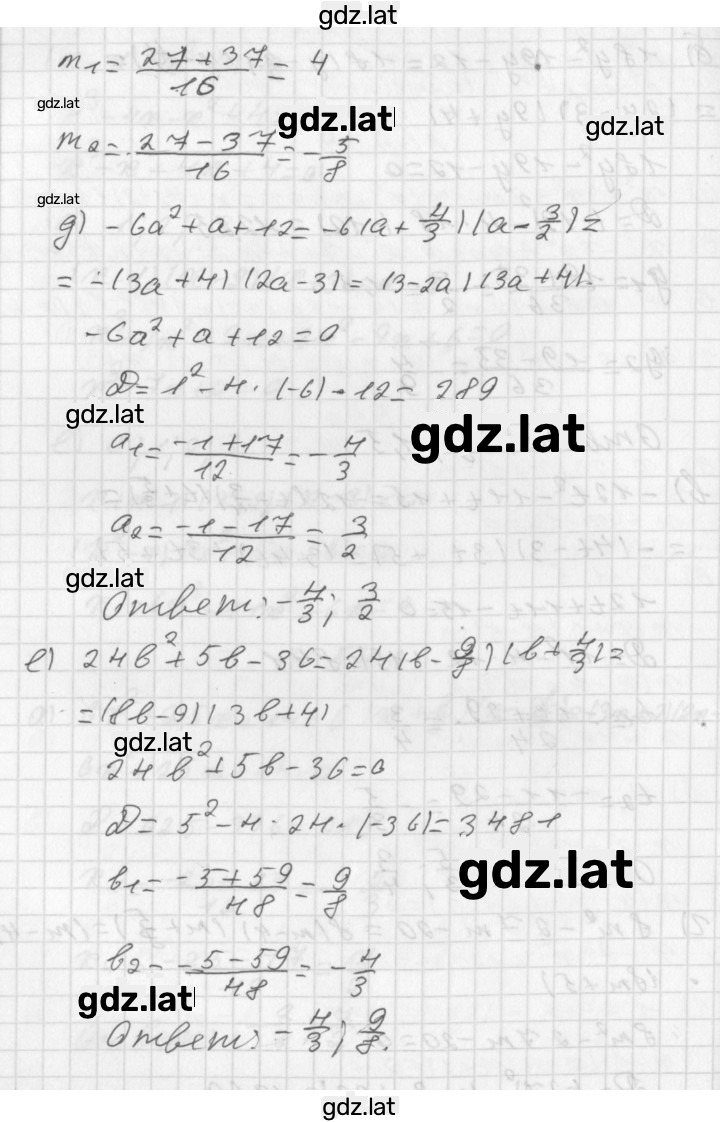 gdz.lat
m₁ = (27+37)/16 = 4
gdz.lat
gdz.lat
gdz.lat
m₂ = (27-37)/16 = -5/8
gdz.lat
д) -6a²+a+12 = -6(a+4/3)(a-3/2) =
= -(3a+4)(2a-3) = (3-2a)(3a+4).
-6a²+a+12=0
D = 1²-4·(-6)·12 = 289
gdz.lat
gdz.lat
a₁ = (-1+17)/12 = -4/3
a₂ = (-1-17)/12 = 3/2
gdz.lat
Ответ: -4/3; 3/2
е) 24в²+5в-36 = 24(в-9/8)(в+4/3) =
= (8в-9)(3в+4)
gdz.lat
24в²+5в-36=0
D = 5²-4·24·(-36) = 3481
gdz.lat
в₁ = (-5+59)/48 = 9/8
в₂ = (-5-59)/48 = -4/3
gdz.lat
Ответ: -4/3; 9/8.
gdz.lat